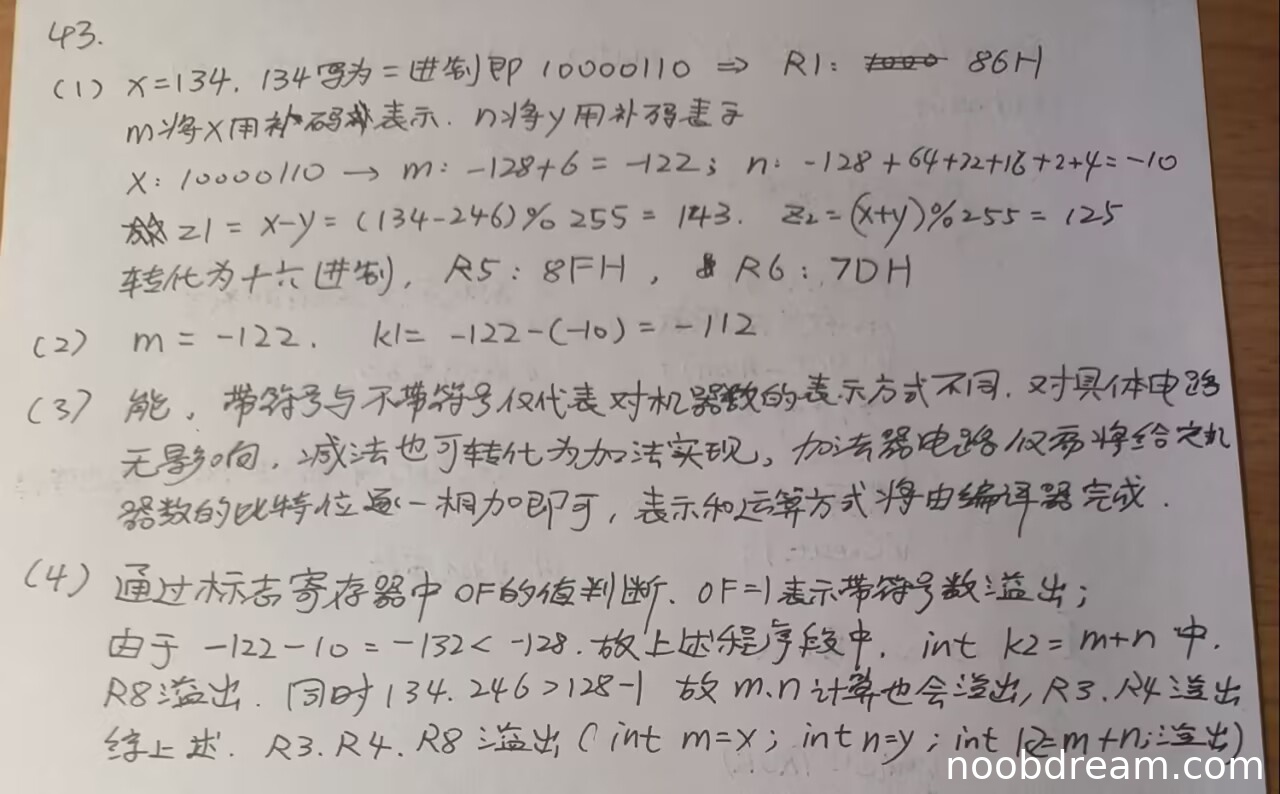 43.
(1) x=134. 134写为二进制即 10000110 ⇒ R1: 86H
m将x用补码表示. n将y用补码表示
x: 10000110 → m: -128+6=-122; n: -128+64+32+16+2+4=-10
z1 = x-y = (134-246)%255 = 143. z2=(x+y)%255 = 125
转化为十六进制, R5: 8FH, R6: 7DH
(2) m = -122. k1= -122-(-10) = -112
(3) 能. 带符号与不带符号仅代表对机器数的表示方式不同. 对具体电路
无影响. 减法也可转化为加法实现, 加法器电路仅需将给定机
器数的比特位逐一相加即可, 表示和运算方式将由编译器完成.
(4) 通过标志寄存器中OF的值判断. OF=1表示带符号数溢出;
由于 -122-10 = -132 < -128. 故上述程序段中. int k2=m+n 中.
R8溢出. 同时134.246>128-1 故m.n计算也会溢出, R3.R4溢出
综上述. R3.R4.R8溢出 (int m=x; int n=y; int k2=m+n;溢出)
noobdream.com